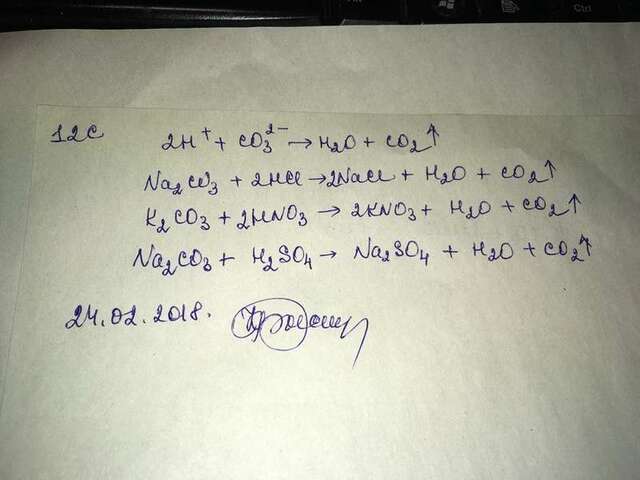 12C
2H⁺ + CO₃²⁻ → H₂O + CO₂↑
Na₂CO₃ + 2HCl → 2NaCl + H₂O + CO₂↑
K₂CO₃ + 2HNO₃ → 2KNO₃ + H₂O + CO₂↑
Na₂CO₃ + H₂SO₄ → Na₂SO₄ + H₂O + CO₂↑
24.02.2018.
Ctrl